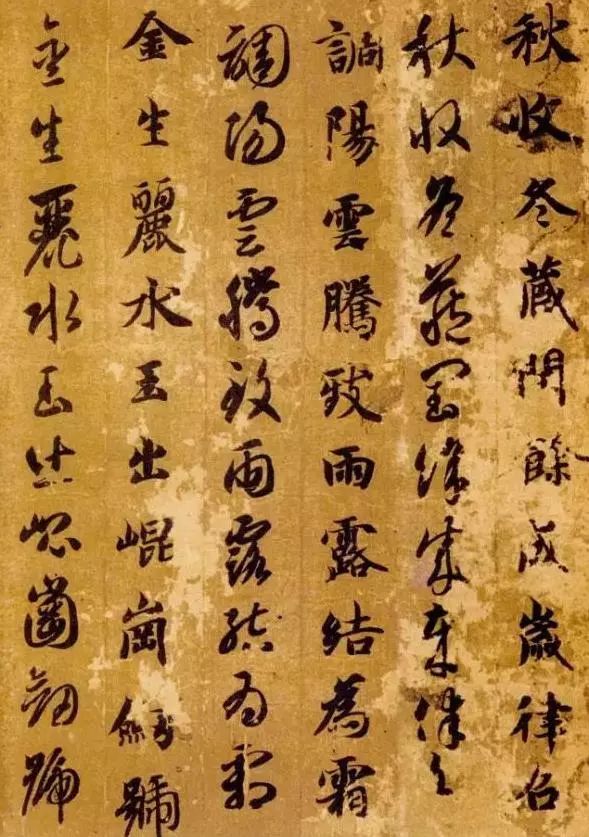 秋收冬藏閏餘成歲律召
秋收冬藏閏餘成歲律召
調陽雲騰致雨露結為霜
調陽雲騰致雨露結為霜
金生麗水玉出崐崗劒號
金生麗水玉出崐崗劒號